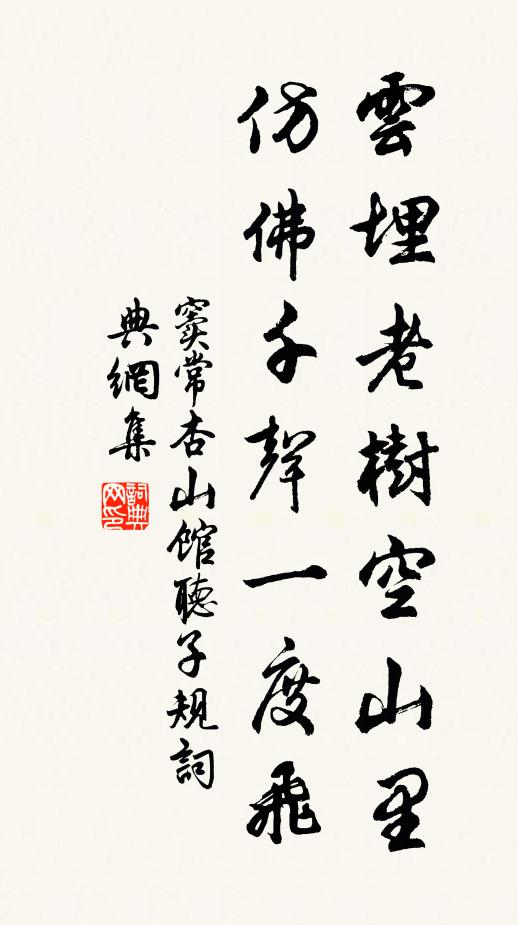 雲埋老樹空山里
仿佛千聲一度飛
竇常杏山館聽子規詞
典網集
詞典網印